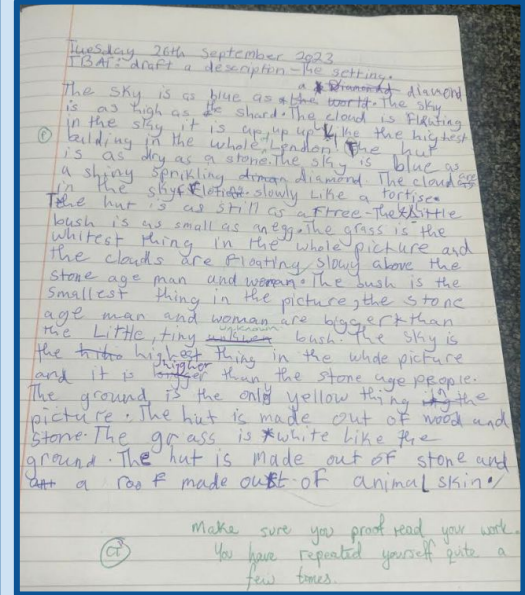 Tuesday 26th September 2023
TBAT: draft a description - the setting.
The sky is as blue as a diamond
is as high as the shard. The cloud is Floating
in the sky it is up, up up like the highest
building in the whole London! The hut
is as dry as a stone. The sky is blue as
a shiny sprikling diamond. The cloud are
in the sky slowly Like a tortise.
The hut is as still as a tree. The little
bush is as small as an egg. The grass is the
whitest thing in the whole picture and
the clouds are Floating slowy above the
stone age man and woman. The bush is the
smallest thing in the picture, the stone
age man and woman are bigger than
the Little, tiny unknown bush. The sky is
the highest thing in the whole picture
and it is higher than the stone age people.
The ground is the only yellow thing the
picture. The hut is made out of wood and
stone. The grass is white Like the
ground. The hut is made out of stone and
a roof made out of animal skin.
Make sure you proof read your work.
You have repeated yourself quite a
few times.